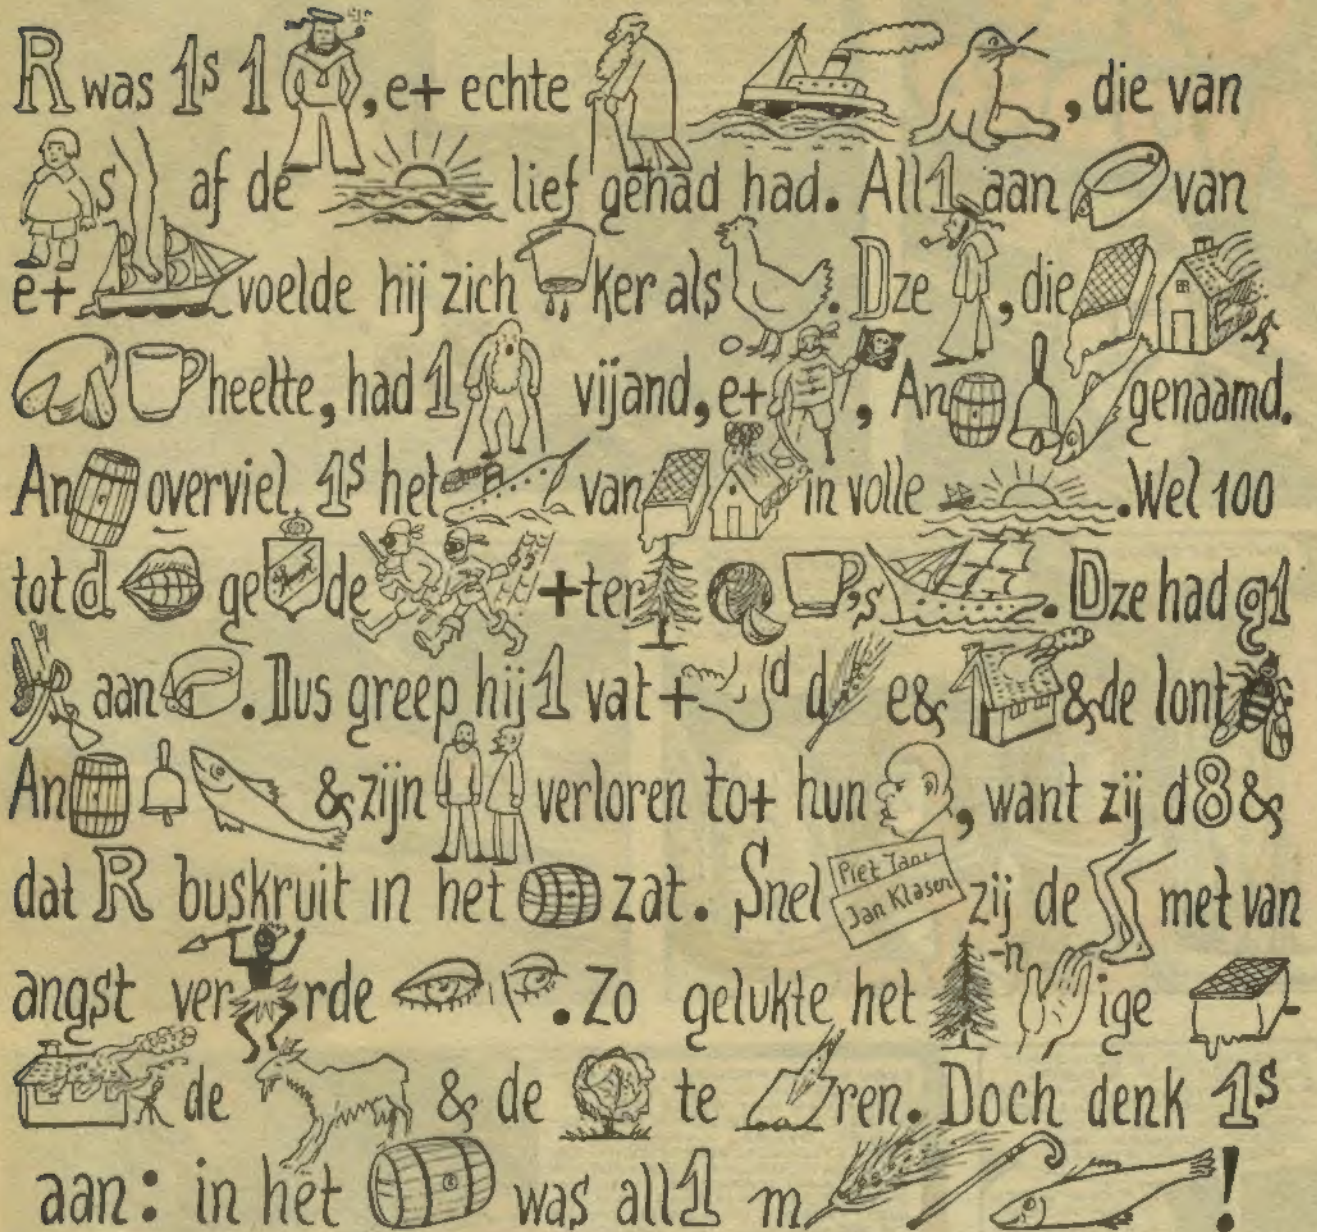 R was 1s 1 , e+ echte , die van
s af de lief gehad had. All1 aan van
e+ voelde hij zich ker als . Dze , die
heette, had 1 vijand, e+ , An genaamd.
An overviel 1s het van in volle . Wel 100
tot d ge de +ter P's . Dze had g1
aan . Dus greep hij 1 vat + d d e& & de lont
An & zijn verloren to+ hun , want zij d8&
dat R buskruit in het zat. Snel Piet Jan. Jan Klasen zij de met van
angst ver rde . Zo gelukte het -n ige -
de & de te ren. Doch denk 1s
aan: in het was all1 m !